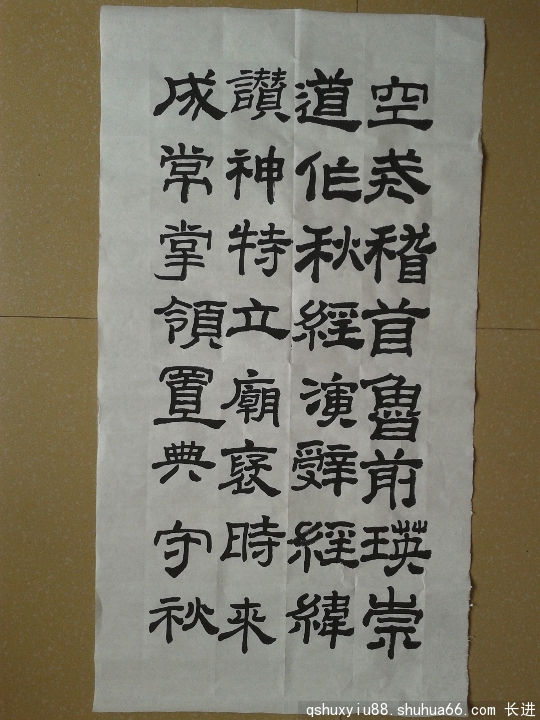 空戒稽首魯前瑛崇
道作秋經演辭經緯
讚神特立廟褒時來
成常掌領置典守秋
qshuxyiu88.shuhua66.com 长进